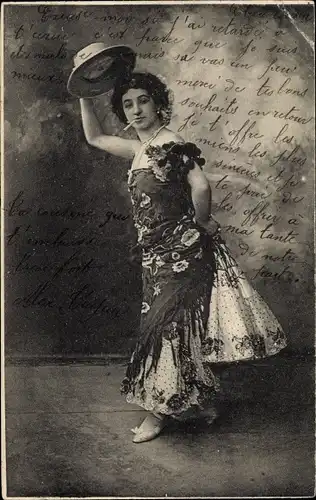 Excuse moi si j'ai retardé à
t'ecrire c'est parce que je suis
été malade mais sa vas un peu
mieux merci de tes bons
souhaits en retour
je t'offre les
miens les plus
sincères et te
de
l'offrir à
ma tante
de notre
part.
Ta cousine que
t'embrasse
bien fort